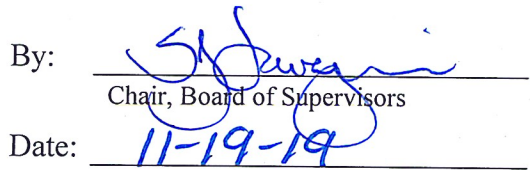 By:
Chair, Board of Supervisors
Date: 11-19-19